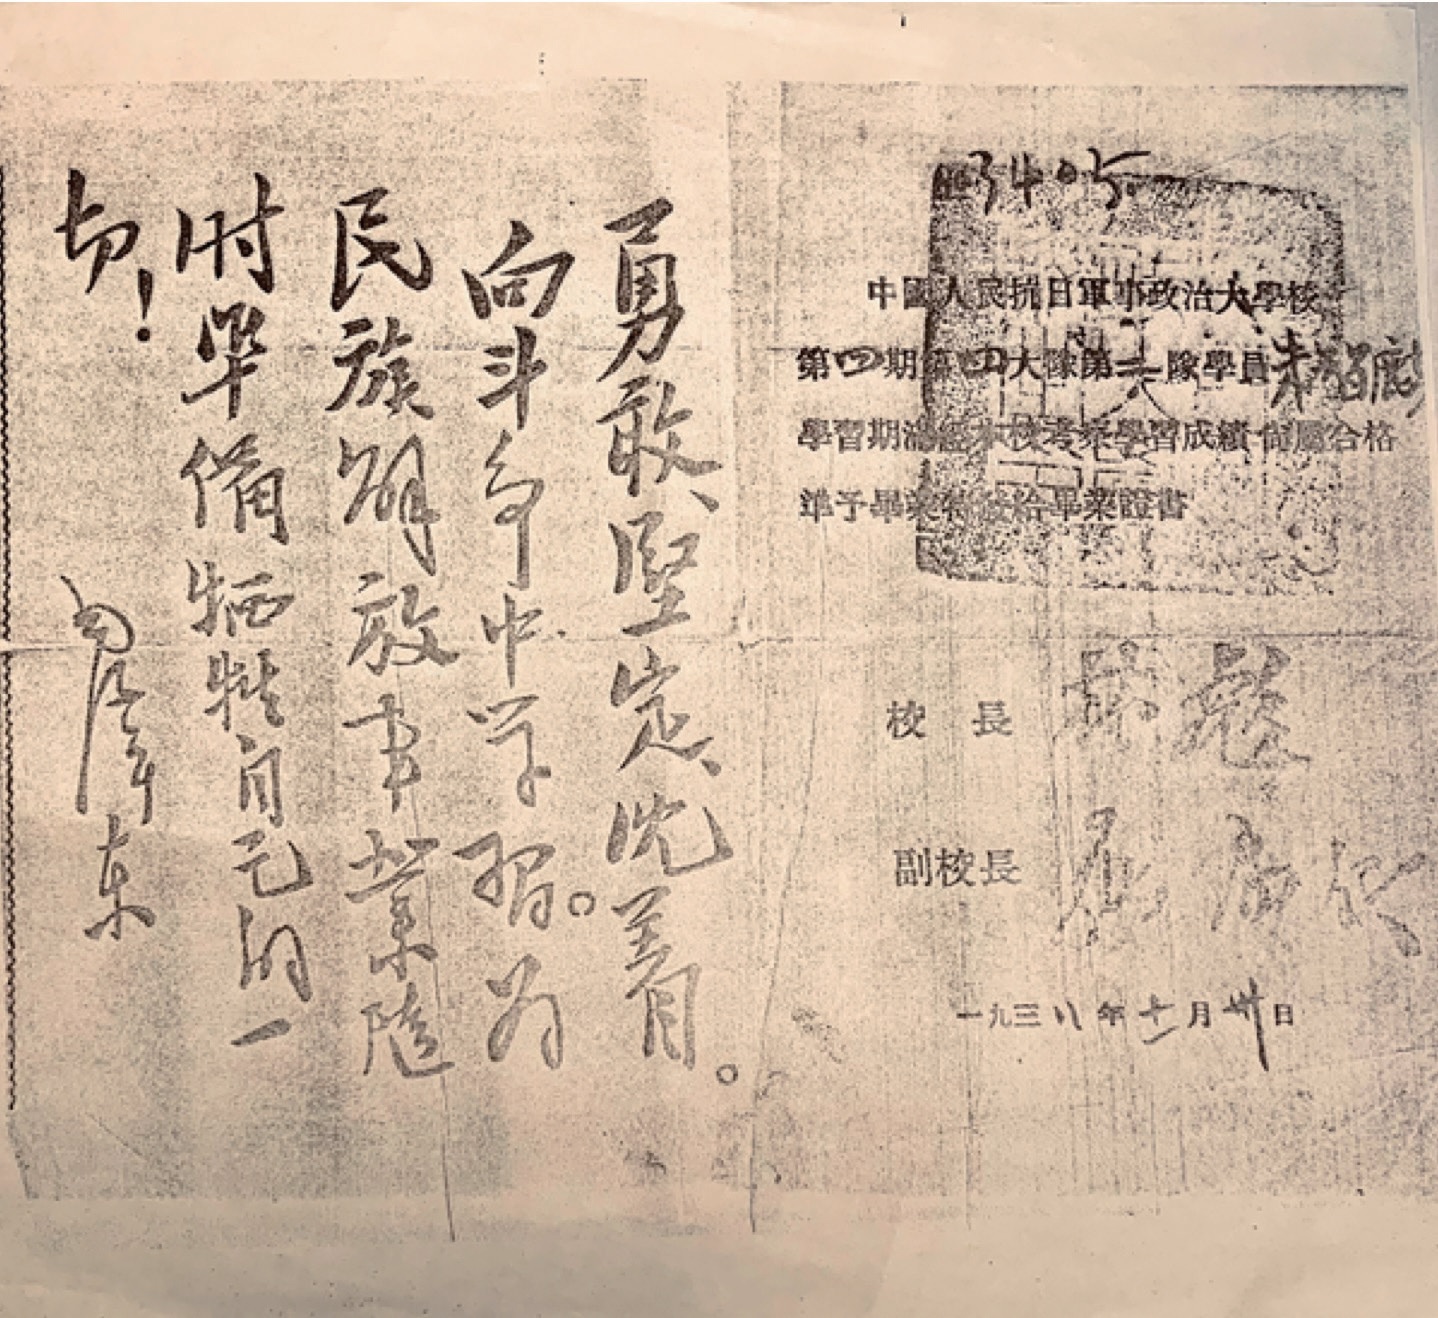 3405.
中國人民抗日軍事政治大學校
第四期第四大隊第隊學員朱
學習期滿經本校考察學習成績尚屬合格
準予畢業特發給畢業證書
校長 林彪
副校長 羅瑞卿
一九三八年十一月卅日
勇敢、堅定、沈着。
向斗争中学習。为
民族解放事業隨
时準備牺牲自己的一
切！
毛澤東